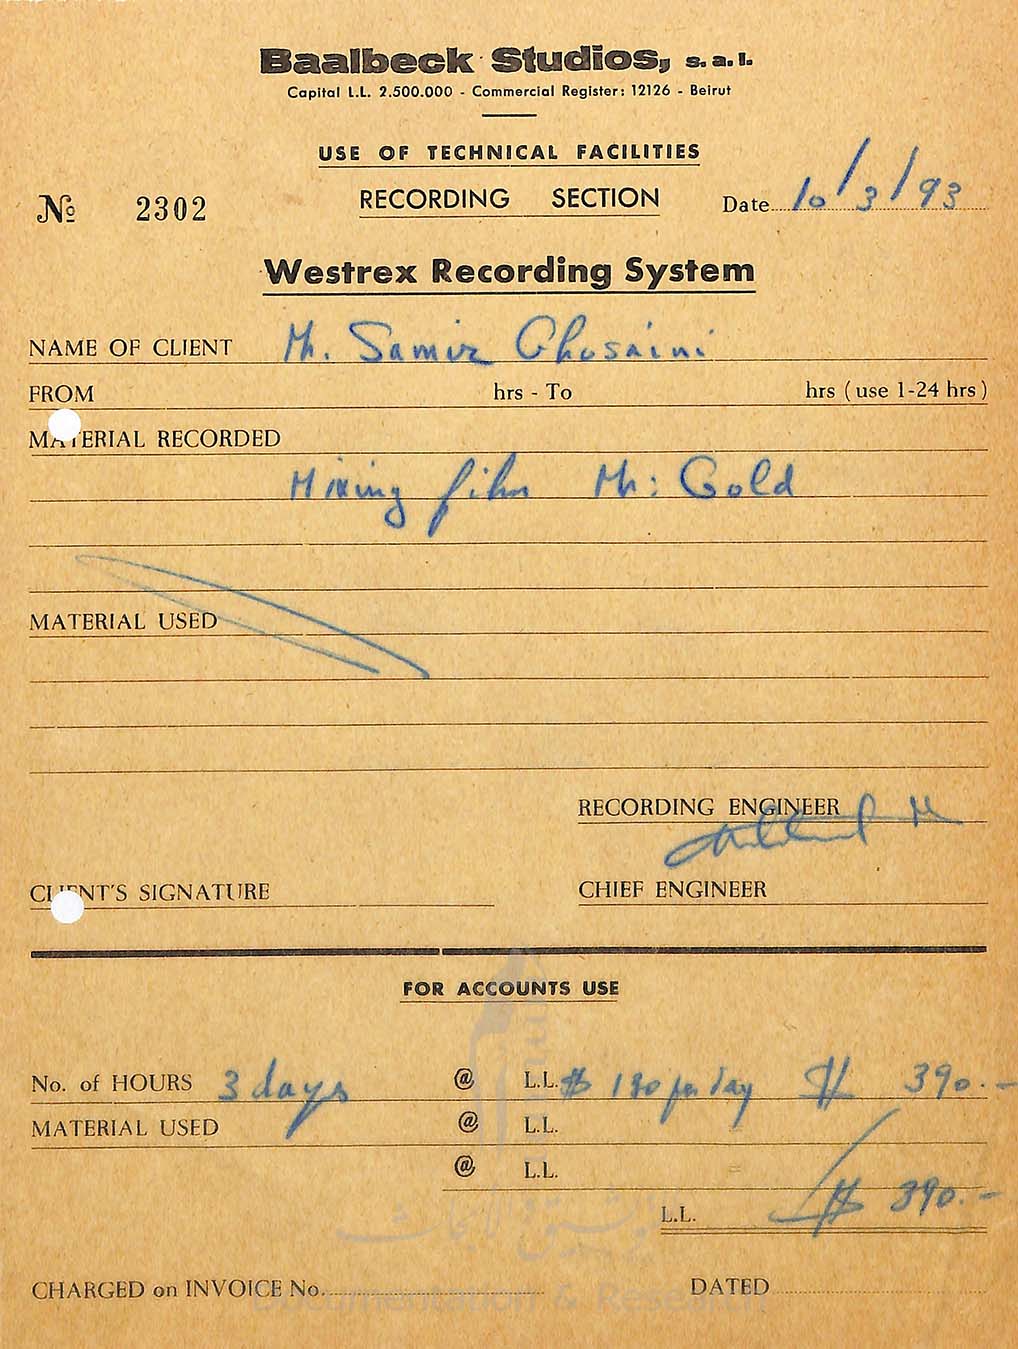 Baalbeck Studios, s.a.l.
Capital L.L. 2.500.000 - Commercial Register: 12126 - Beirut
USE OF TECHNICAL FACILITIES
№ 2302 RECORDING SECTION Date 10/3/93
Westrex Recording System
NAME OF CLIENT Mr. Samir Ghosaini
FROM hrs - To hrs (use 1-24 hrs)
MATERIAL RECORDED
Mixing film Mr: Gold
MATERIAL USED
RECORDING ENGINEER
CLIENT'S SIGNATURE CHIEF ENGINEER
FOR ACCOUNTS USE
No. of HOURS 3 days @ L.L. $ 130 per day $ 390.-
MATERIAL USED @ L.L.
@ L.L. =
L.L. $ 390.-
CHARGED on INVOICE No. DATED
Documentation & Research